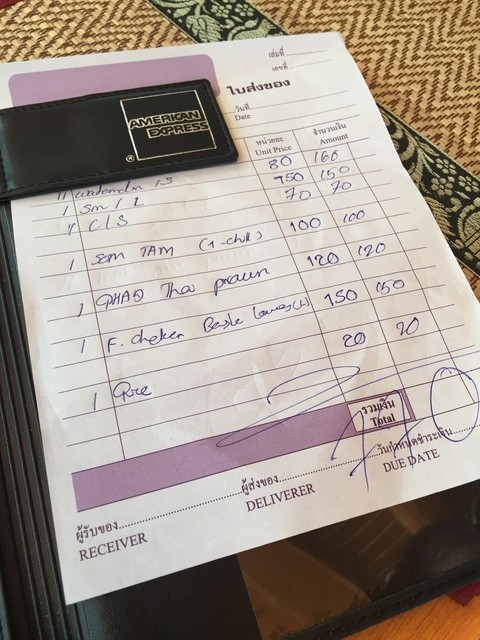 เล่มที่
เลขที่
ใบส่งของ
วันที่
Date
AMERICAN EXPRESS ®
หน่วยละ จำนวนเงิน
Unit Price Amount
11 watermelon /S 80 160
1 Sm / L 150 150
1 C/S 70 70
1 SOM TAM (1-chilli) 100 100
1 PHAD Thai prawn 120 120
1 F. chicken Basle Leaves (L) 150 150
1 Rice 20 20
รวมเงิน
Total
ผู้รับของ ผู้ส่งของ วันกำหนดชำระเงิน
RECEIVER DELIVERER DUE DATE